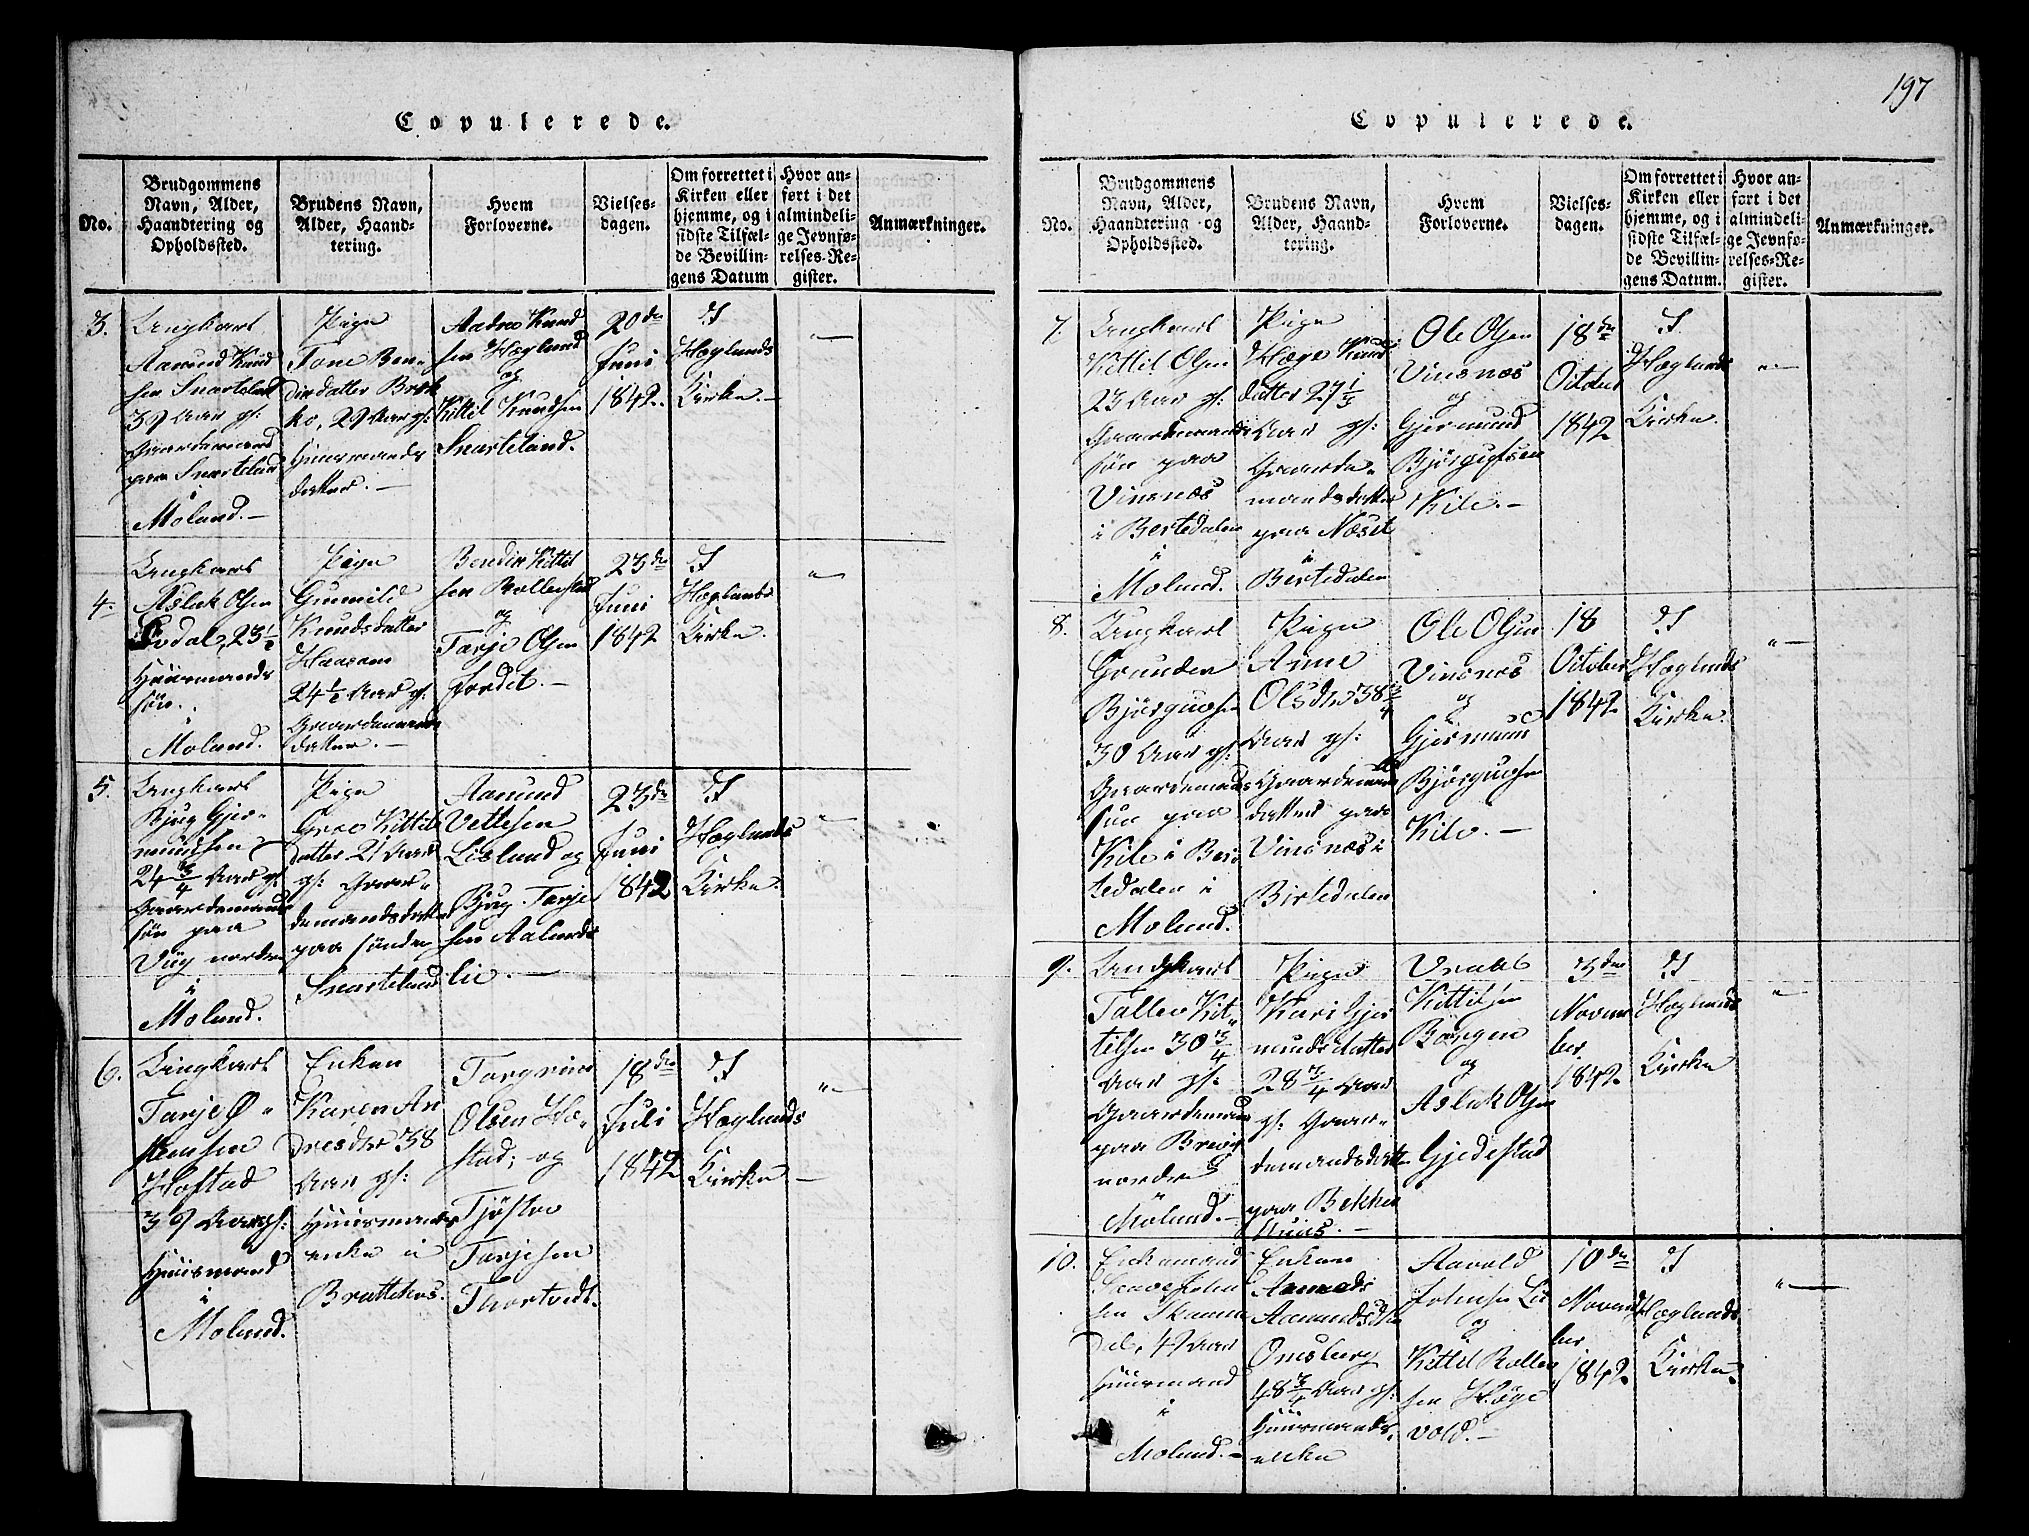 Copulerede.
No.
Brudgommens
Navn, Alder,
Haandtering og
Opholdssted.
Brudens Navn,
Alder, Haand-
tering.
Hvem
Forloverne.
Vielses-
dagen.
Om forrettet i
Kirken eller
hjemme, og i
sidste Tilfæl-
de Bevillin-
gens Datum
Hvor an-
ført i det
almindeli-
ge Jevnfø-
relses-Re-
gister.
Anmærkninger.
3.
Ungkarl
Aamund Knud
sen Snarteland
39 Aar gl:
Gaardemand
paa Snarteland
i
Moland.
Pige
Tone Ben-
disdatter
ko, 29 Aar gl:
Huusmands
datter.
Aadne Knud
sen Hægland
og
Kittil Knudsen
Snarteland.
20de
Juni
1842.
I
Hæglands
Kirke.
"
4.
Ungkarl
Aslak Olsen
23½
Huusmands
søn.
i
Moland.
Pige
Gunnild
Knudsdatter
24½ Aar gl.
Gaardemands
datter.
Bendix Kittil
sen Rollerstad
og
Tarje Olsen
23de
Juni
1842
I
Hæglands
Kirke.
"
5.
Ungkarl
Bjug Gjer-
mundsen
24 3/4 Aar gl.
Gaardemands
søn paa
Viig nordre
i
Moland.
Pige
Groe Kittils
datter 21 Aar
gl: Gaar-
demandsdatter
paa søndre
Snarteland
Aamund
Vetlesen
Lisland og
Bjug Tarje
sen Aalands
lie.
23de
Juni
1842
I
Hæglands
Kirke.
"
6.
Ungkarl
Tarje Ø-
stensen
Hæstad
39 Aar gl:
Huusmand
i
Moland.
Enken
Karen An
dresdtr 38
Aar gl:
Huusmands
enke i
Brattekos.
Torgrim
Olsen Hæ-
stad, og
Tjøstov
Tarjesen
Thortvedt.
18de
Juli
1842
I
Hæglands
Kirke
"
197
Copulerede.
No.
Brudgommens
Navn, Alder,
Haandtering og
Opholdssted.
Brudens Navn,
Alder, Haand-
tering.
Hvem
Forloverne.
Vielses-
dagen.
Om forrettet i
Kirken eller
hjemme, og i
sidste Tilfæl-
de Bevillin-
gens Datum.
Hvor an-
ført i det
almindeli-
ge Jevnfø-
relses-Re-
gister.
Anmærkninger.
7.
Ungkarl
Kittil Olsen
23 Aar gl:
Gaardemands
søn paa
Vinsnæs
i Bestedalen
i
Moland.
Pige
Hæge Knuds
datter 27 1/3
Aar gl:
Gaarde-
mandsdatter
paa Næset
i
Bestedalen
Ole Olsen
Vinsnæs
og
Gjermund
Bjørgufsen
Kile.
18de
October
1842
I
Hæglands
Kirke.
"
8.
Ungkarl
Gunder
Bjørgufsen
30 Aar gl:
Gaardemands
søn paa
Kile i Bes
tedalen i
Moland.
Pige
Anne
Olsdtr 38 3/4
Aar gl:
Gaardemands
datter paa
Vinsnæs i
Bestedalen
Ole Olsen
Vinsnæs
og
Gjermund
Bjørgufsen
Kile.
18
October
1842
I
Hæglands
Kirke.
"
9.
Ungkarl
Tallev Kit-
tilsen 30 3/4
Aar gl:
Gaardemand
paa Breivig
nordre
i
Moland.
Pige
Kari Gjer
mundsdatter
28 3/4 Aar
gl. Gaar-
demandsdatter
paa Bekke
huus.
Kittilsen
og
Aslak Olsen
Gjedestad
3die
Novem
ber
1842
I
Hæglands
Kirke
"
10.
Enkemand
sen
dal, 49 Aar
Huusmand
i
Moland.
Enken
Aamundsdtr
Omsberg
48 3/4 Aar gl:
Huusmands
enke
Aavold
Johnsen Lie
og
Kittil Rollev
sen Høge
vold.
10de
Novem
ber
1842
I
Hæglands
Kirke.
"